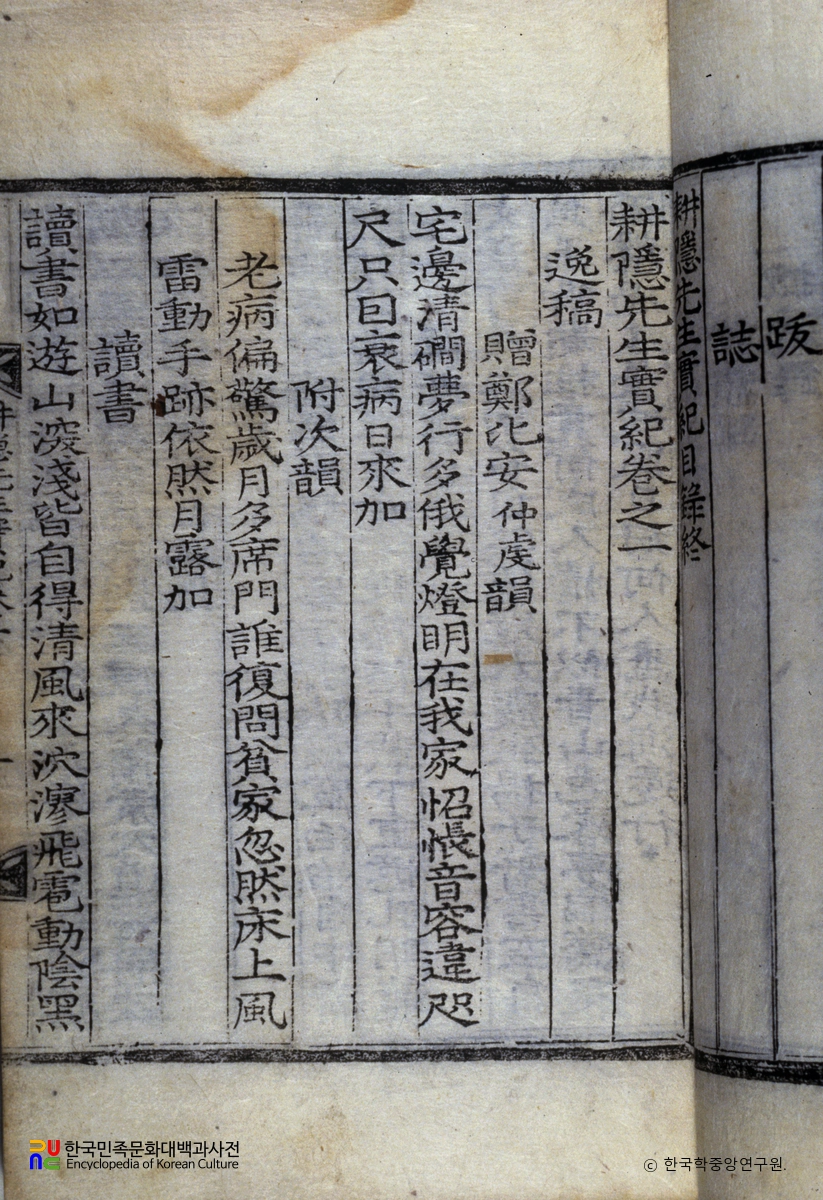 跋
誌
耕隱先生實紀目錄終
耕隱先生實紀卷之一
逸稿
贈鄭比安仲虔韻
宅邊清磵夢行多俄覺燈明在我家怊悵音容違咫
尺只因衰病日來加
附次韻
老病偏驚歲月多席門誰復問貧家忽然床上風
雷動手跡依然月露加
讀書
讀書如遊山深淺皆自得清風來泬漻飛雹動陰黑
한국민족문화대백과사전
Encyclopedia of Korean Culture
© 한국학중앙연구원.